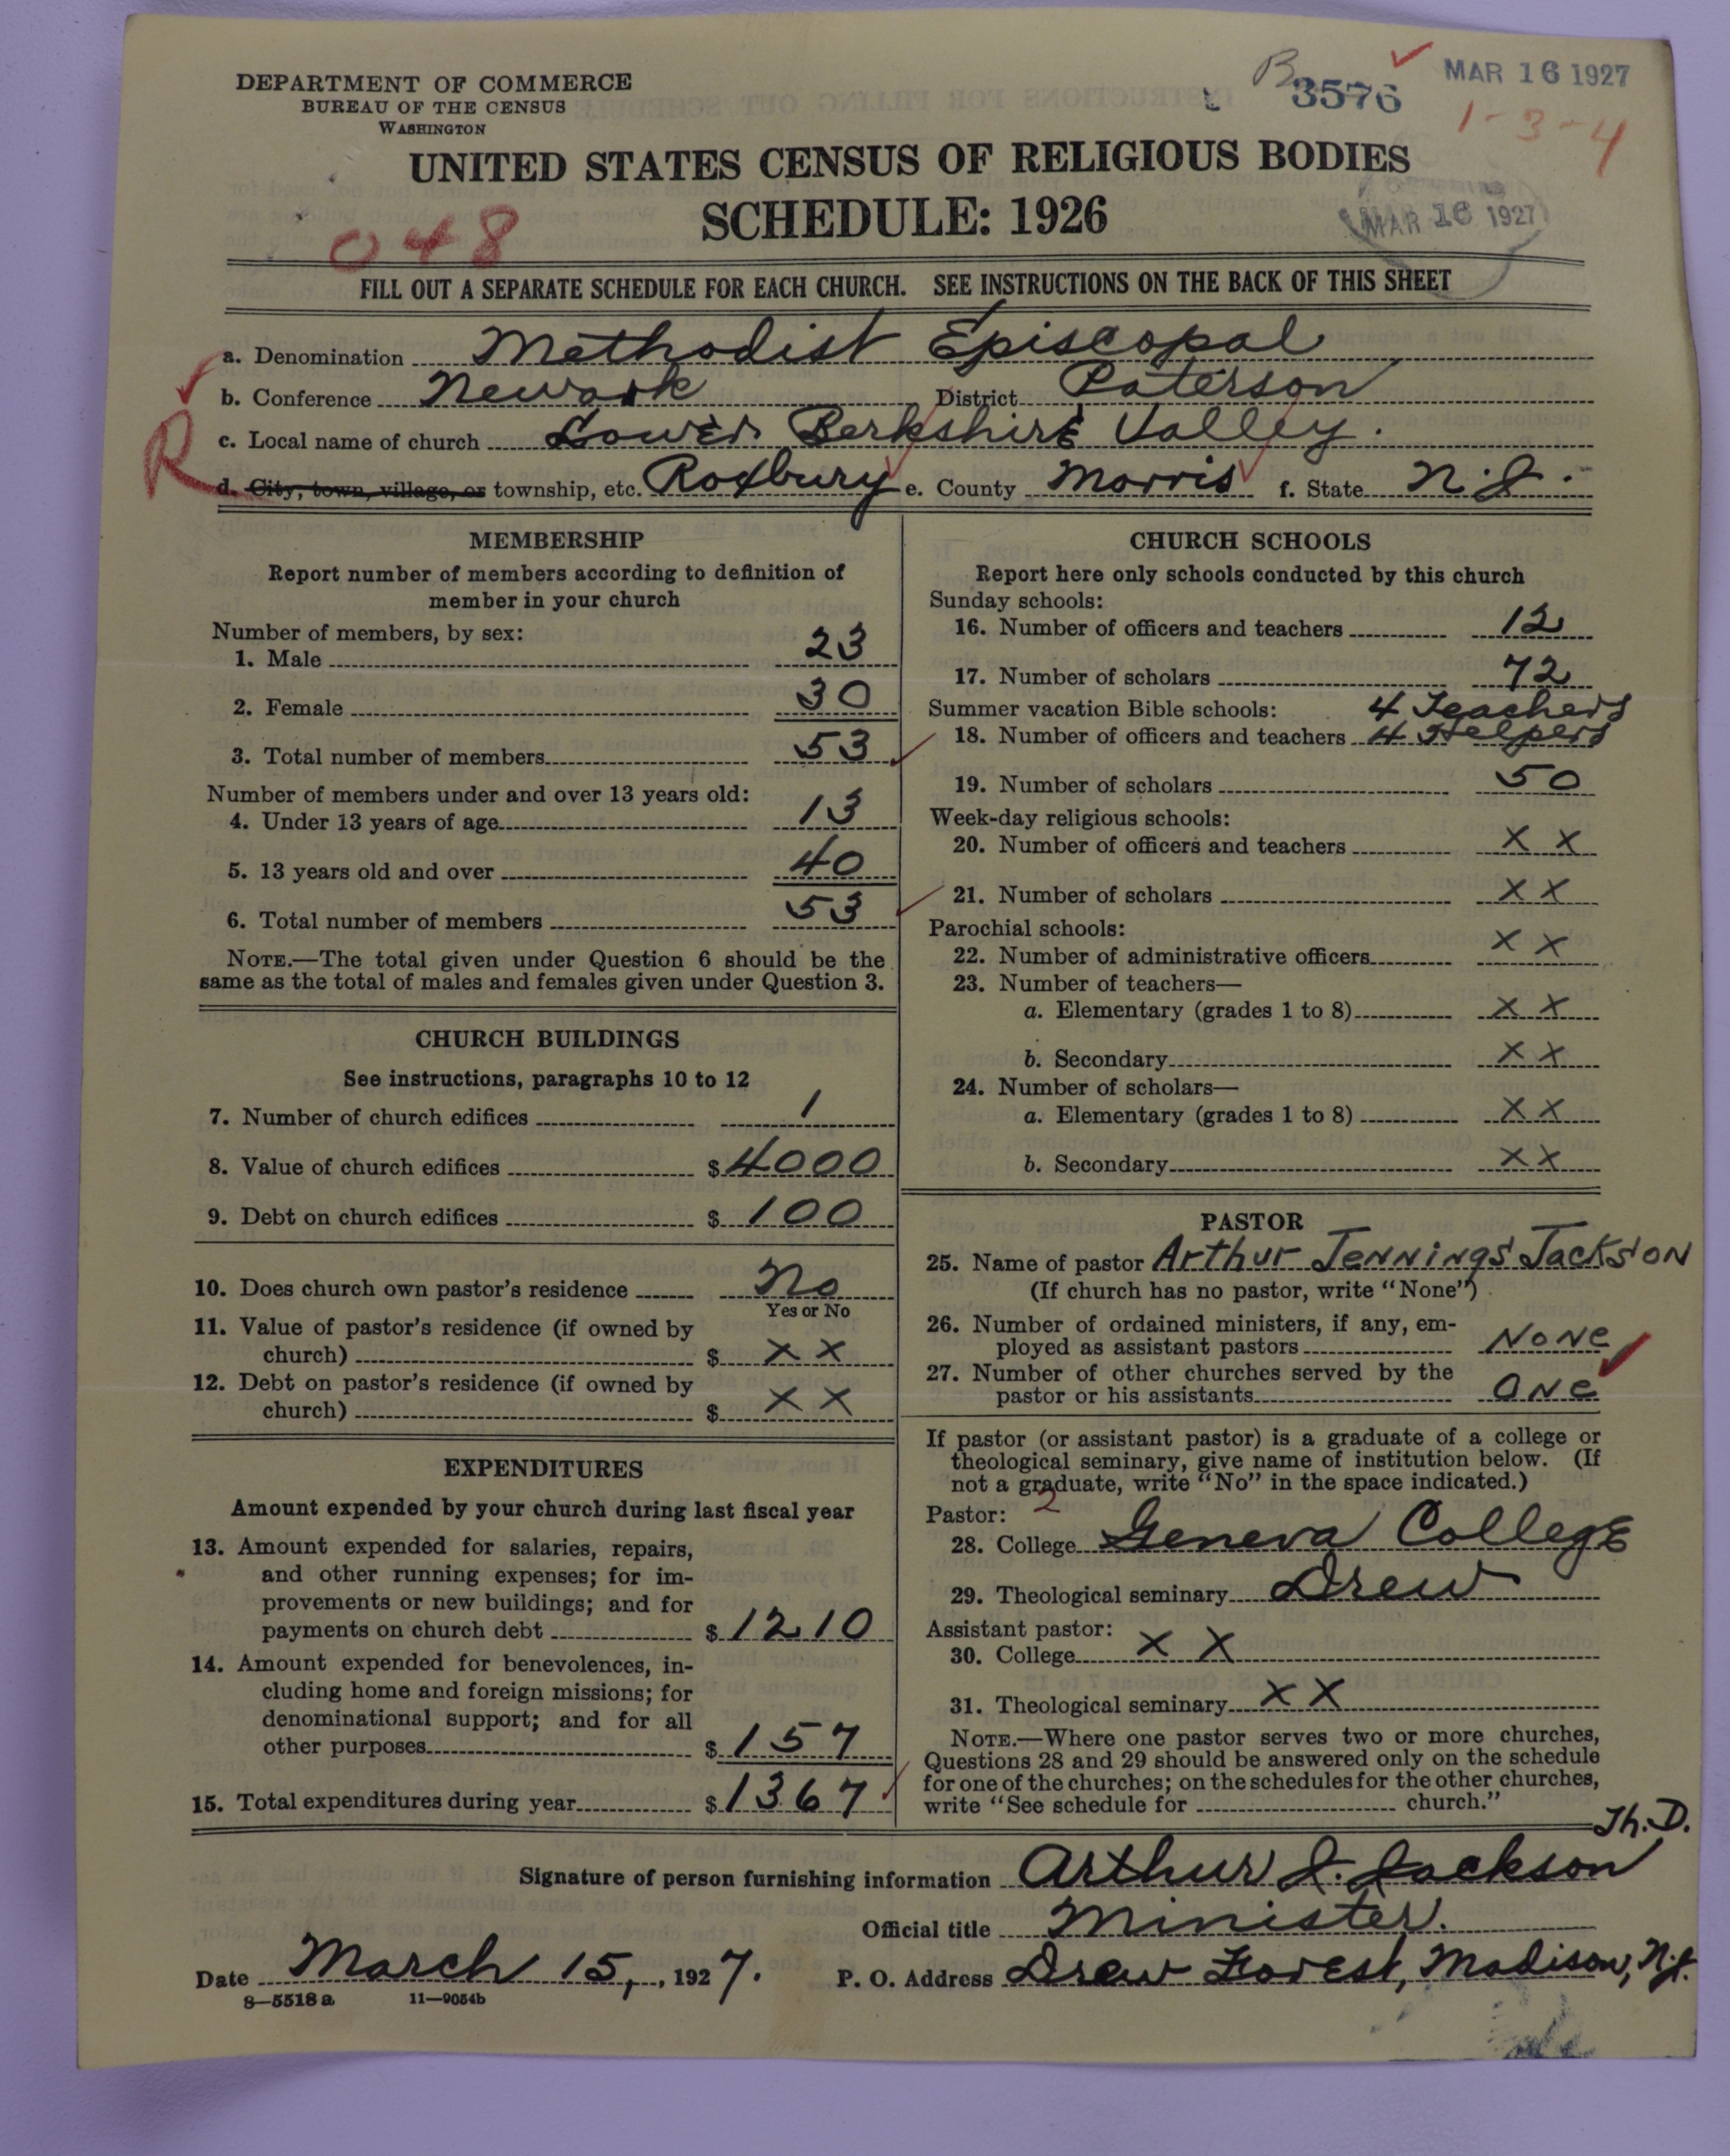 DEPARTMENT OF COMMERCE
BUREAU OF THE CENSUS
WASHINGTON
B 3576
MAR 16 1927
1-3-4
UNITED STATES CENSUS OF RELIGIOUS BODIES
SCHEDULE: 1926
MAR 16 1927
048
FILL OUT A SEPARATE SCHEDULE FOR EACH CHURCH. SEE INSTRUCTIONS ON THE BACK OF THIS SHEET
a. Denomination Methodist Episcopal
b. Conference Newark District Paterson
c. Local name of church Lower Berkshire Valley.
R
d. City, town, village, or township, etc. Roxbury e. County Morris f. State N.J.
MEMBERSHIP
Report number of members according to definition of
member in your church
Number of members, by sex:
1. Male 23
2. Female 30
3. Total number of members 53
Number of members under and over 13 years old:
4. Under 13 years of age 13
5. 13 years old and over 40
6. Total number of members 53
NOTE.—The total given under Question 6 should be the
same as the total of males and females given under Question 3.
CHURCH BUILDINGS
See instructions, paragraphs 10 to 12
7. Number of church edifices 1
8. Value of church edifices $4000
9. Debt on church edifices $100
10. Does church own pastor's residence No
Yes or No
11. Value of pastor's residence (if owned by
church) $ x x
12. Debt on pastor's residence (if owned by
church) $ x x
EXPENDITURES
Amount expended by your church during last fiscal year
13. Amount expended for salaries, repairs,
and other running expenses; for im-
provements or new buildings; and for
payments on church debt $1210
14. Amount expended for benevolences, in-
cluding home and foreign missions; for
denominational support; and for all
other purposes $157
15. Total expenditures during year $1367
CHURCH SCHOOLS
Report here only schools conducted by this church
Sunday schools:
16. Number of officers and teachers 12
17. Number of scholars 72
Summer vacation Bible schools: 4 Teachers
18. Number of officers and teachers 4 Helpers
19. Number of scholars 50
Week-day religious schools:
20. Number of officers and teachers x x
21. Number of scholars x x
Parochial schools:
22. Number of administrative officers x x
23. Number of teachers—
a. Elementary (grades 1 to 8) x x
b. Secondary x x
24. Number of scholars—
a. Elementary (grades 1 to 8) x x
b. Secondary x x
PASTOR
25. Name of pastor Arthur Jennings Jackson
(If church has no pastor, write "None")
26. Number of ordained ministers, if any, em-
ployed as assistant pastors None
27. Number of other churches served by the
pastor or his assistants One
If pastor (or assistant pastor) is a graduate of a college or
theological seminary, give name of institution below. (If
not a graduate, write "No" in the space indicated.)
Pastor: 2
28. College Geneva College
29. Theological seminary Drew
Assistant pastor:
30. College x x
31. Theological seminary x x
NOTE.—Where one pastor serves two or more churches,
Questions 28 and 29 should be answered only on the schedule
for one of the churches; on the schedules for the other churches,
write "See schedule for church."
Th.D.
Signature of person furnishing information Arthur J. Jackson
Official title Minister.
Date March 15, , 1927. P. O. Address Drew Forest, Madison, N.J.
8—5518 a 11—9054b